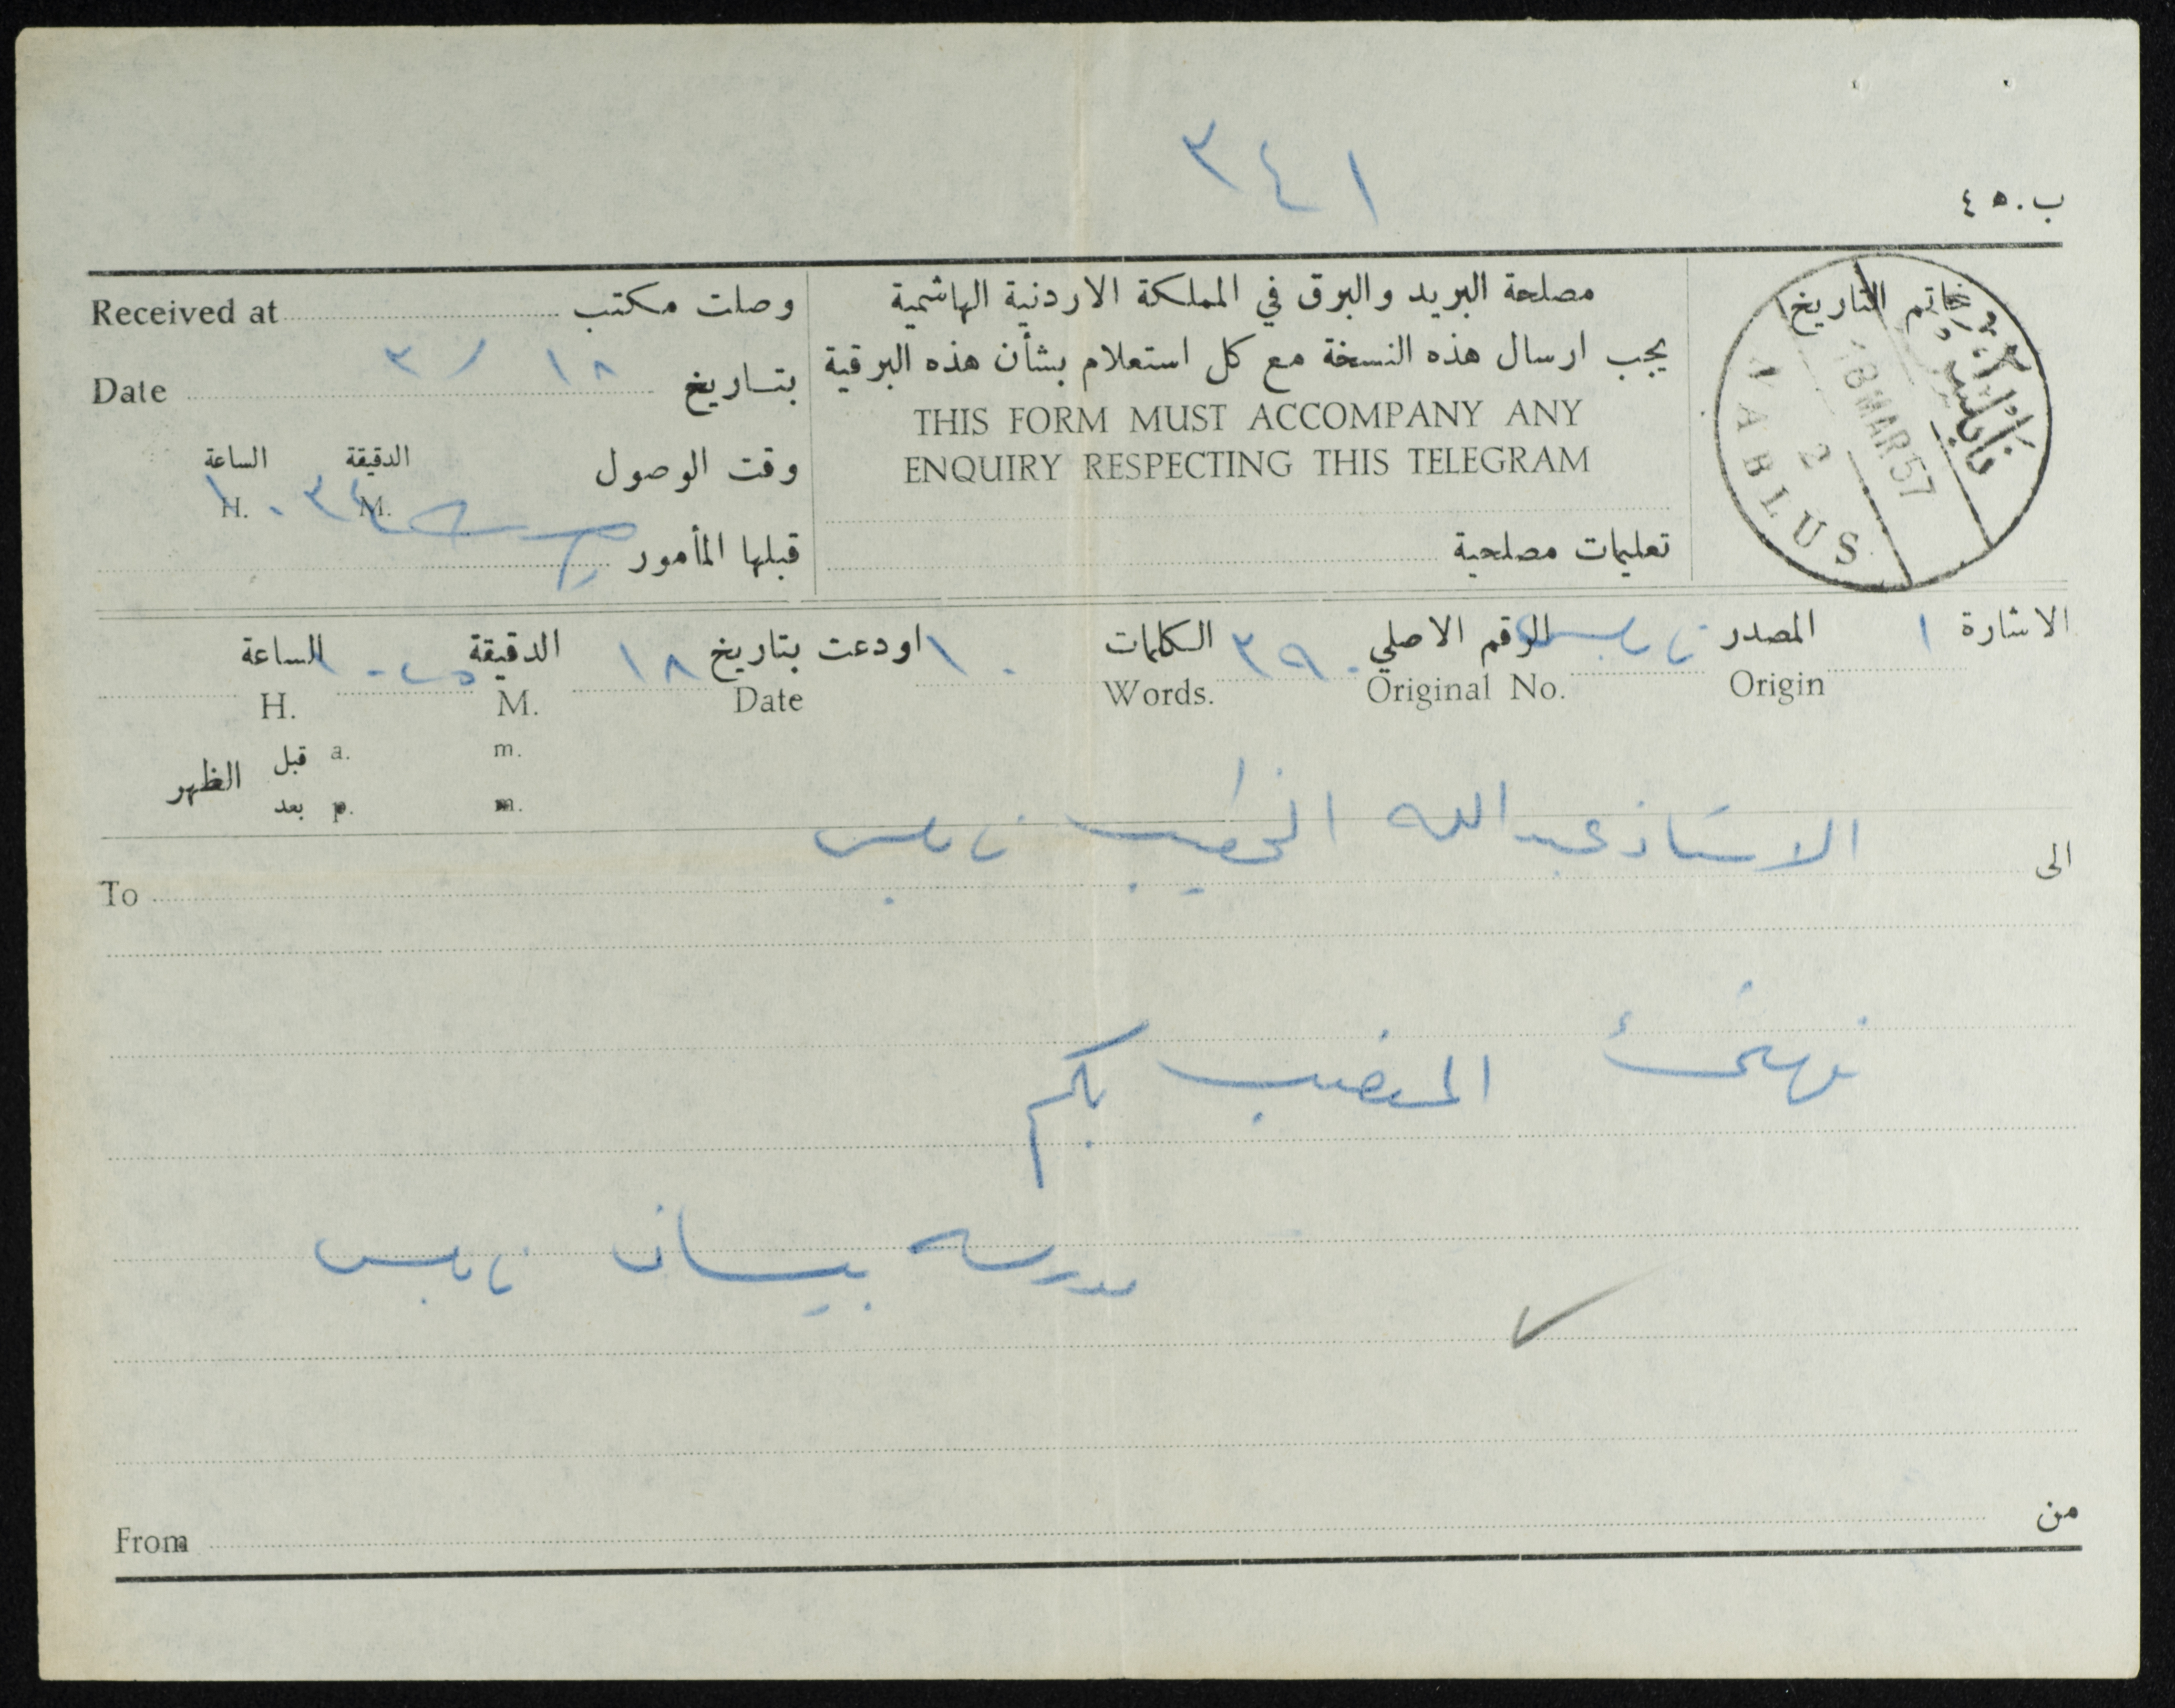 ٣٤١
ب.٤٥
مصلحة البريد والبرق في المملكة الاردنية الهاشمية
يجب ارسال هذه النسخة مع كل استعلام بشأن هذه البرقية
THIS FORM MUST ACCOMPANY ANY
ENQUIRY RESPECTING THIS TELEGRAM
تعليمات مصلحية
خاتم التاريخ
نابلس
18 MAR 57
2
NABLUS
وصلت مكتب Received at
بتاريخ ١٨ / ٣ Date
وقت الوصول الدقيقة الساعة
M. H.
قبلها المأمور
الاشارة ١ المصدر نابلس الرقم الاصلي ٣٩٠ الكلمات ١٠ اودعت بتاريخ ١٨ الدقيقة الساعة
Origin Original No. Words. Date M. H.
قبل a. m.
الظهر
بعد p. m.
الى الاستاذ عبدالله الخطيب نابلس To
نهنئ المنصب بكم
مدرسة بيسان نابلس
من From